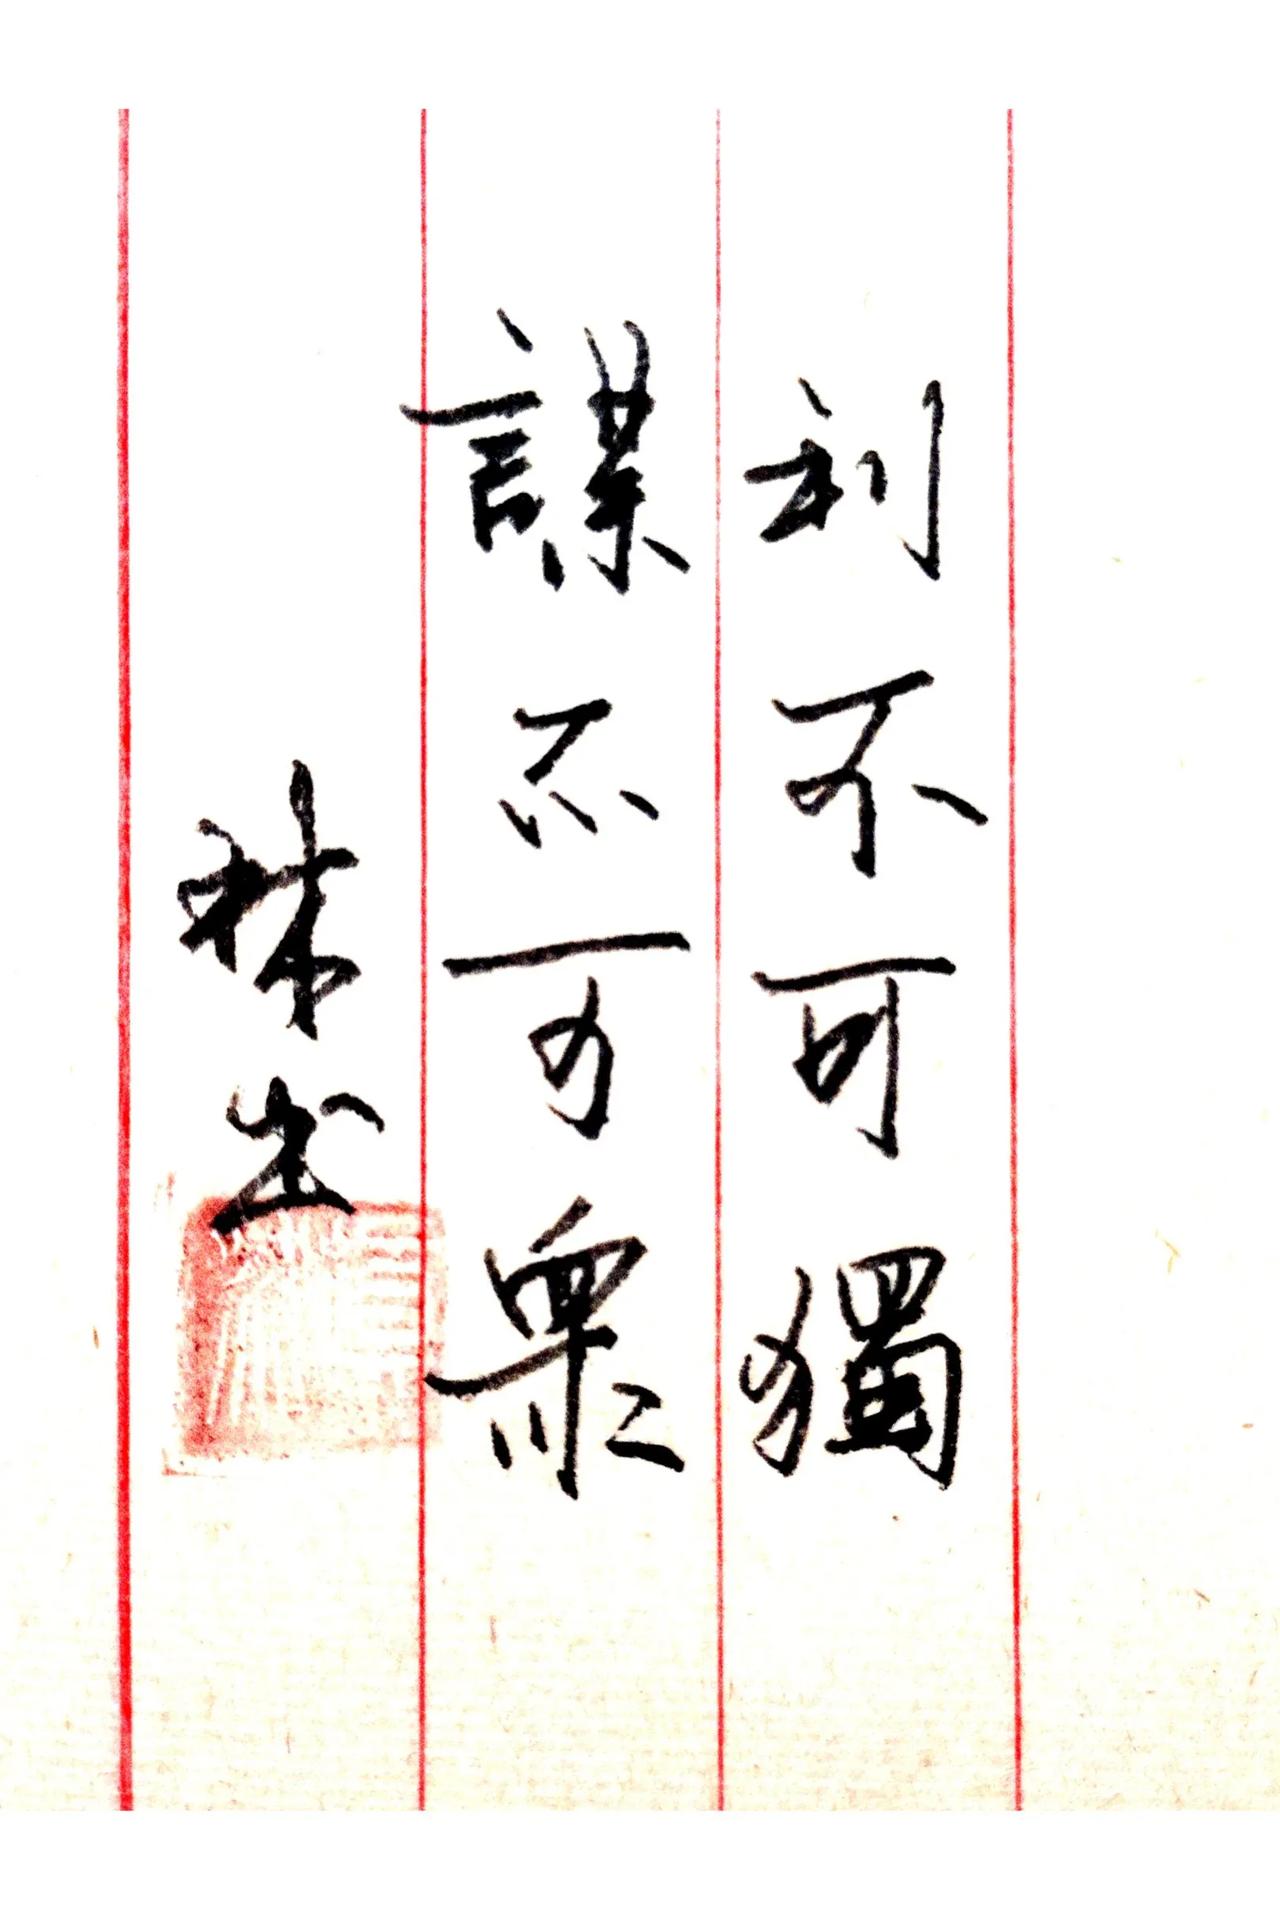 利不可獨
謀不可衆